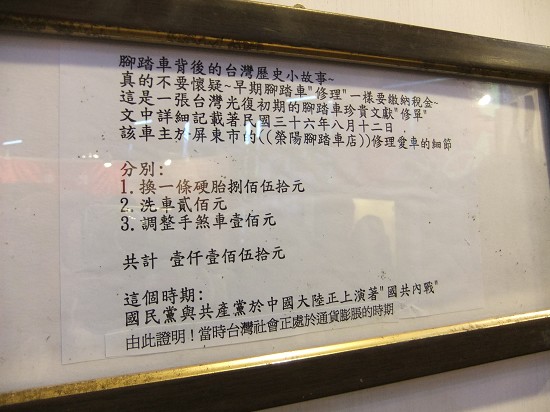 腳踏車背後的台灣歷史小故事~
真的不要懷疑~早期腳踏車"修理"一樣要繳納稅金~
這是一張台灣光復初期的腳踏車珍貴文獻"修單"
文中詳細記載著民國三十六年八月十二日
該車主於屏東市的((榮陽腳踏車店))修理愛車的細節
分別:
1. 換一條硬胎捌佰伍拾元
2. 洗車貳佰元
3. 調整手煞車壹佰元
共計 壹仟壹佰伍拾元
這個時期:
國民黨與共產黨於中國大陸正上演著"國共內戰"
由此證明!當時台灣社會正處於通貨膨脹的時期